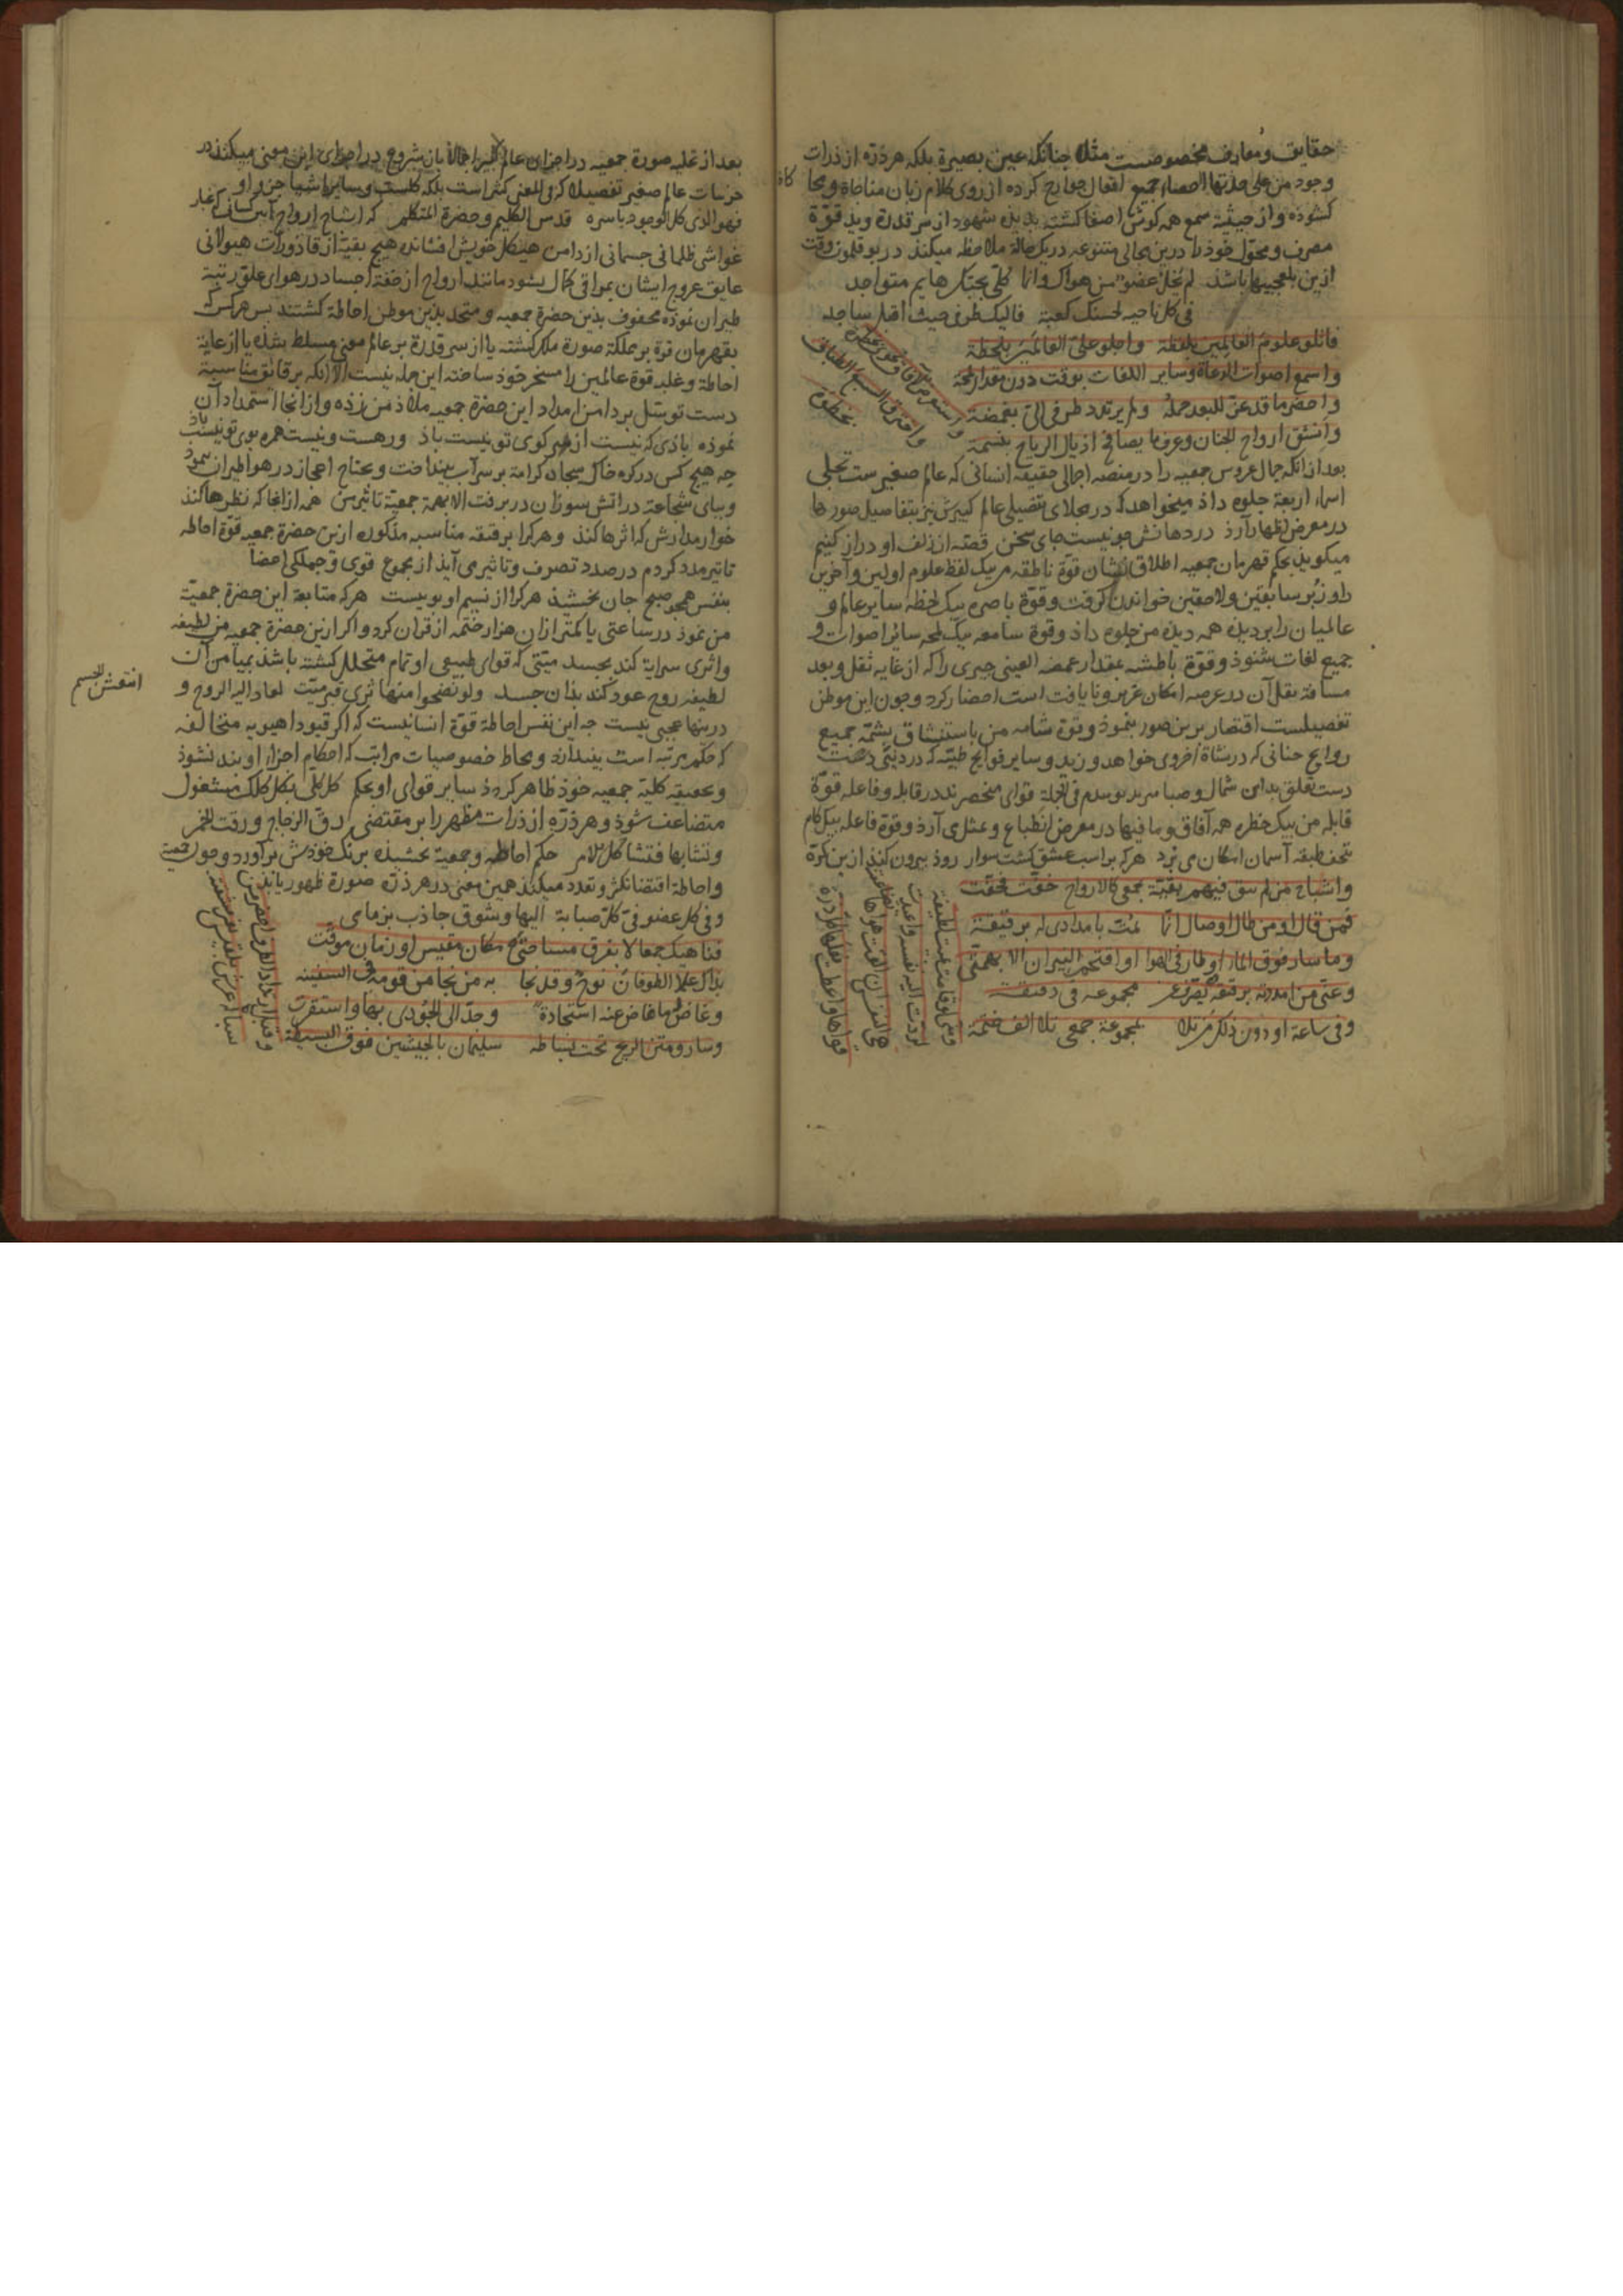 حقایق و معارف مخصوصست مثلا چنانکه عین بصیرة بلکه هر ذرّه از ذرات
وجود من علی حدتها احصاء جمیع افعال جوارح کرده از روی کلام زبان مناجاة و محا
کشوده و از حیثیة سمع همه کوش اصغا کشته بدیده شهود از سر قدرة و ید قوّة
مصرف و محوّل خوذ را درین مجالی متنوعه در یک حالة ملاحظه میکنذ در بوقلمون وقت
ازین بلعجبیها باشذ لم یخل عضو من هواک وانا کلی بحبّک هایم متواجد
فی کل ناحیه لحسنک کعبة فالیک طرفی حیث اقبل ساجد
فاتلو علوم العالمین بلفظة واجلو علیّ العالمین بلحظة
واسمع اصوات الدعاة وسایر اللغات بوقت دون مقدار لمحة
واحضر ما قد عزّ للبعد حمله ولم یرتدد طرفی الیّ بغمضة
وانشق ارواح الجنان وعرف ما یصافح اذیال الریاح بنسمة
واستعرض الآفاق نحوی بخطرة
واخترق السبع الطباق بخطوة
بعد از آنکه جمال عروس جمعیه را در منصه اجمالی حقیقه انسانی که عالم صغیرست تجلی
اسماء اربعة جلوه داذ میخواهد که در مجلای تفصیلی عالم کبیرش نیز بتفاصیل صورها
در معرض اظهار آرذ در دهانش چو نیست جای سخن قصّه از زلف او دراز کنیم
میکویذ بحکم قهرمان جمعیه اطلاق نشان قوّة ناطقه من بیک لفظ علوم اولین و آخرین
را و زبر سابقین ولاحقین خواندن کرفت وقوّة باصره بیک لحظه سایر عالم و
عالمیان را بر دیدۀ همه دیدۀ من جلوه داذ وقوة سامعه بیک لمحه سائر اصوات و
جمیع لغات شنوذ وقوّة باطشه بمقدار غمضه العینی چیزی را که از غایه ثقل و بعد
مسافة نقل آن در عرصه امکان عزیز و نایافت است احضار کرد و چون این موطن
تفصیلست اقتصار برین صور ننموذ و قوة شامه من باستنشاق یشمّه جمیع
روایح جنانی که در نشاة اخروی خواهد وزید و سایر فوایح طیّبه که در دنیی
دست تعلق بدامن شمال و صبا فی الجملة قوای منحصرند در قابله وفاعله قوّة
قابله من بیک خطره همه آفاق وما فیها در معرض انطباع و تمثل می آرذ وقوة فاعله بیک کام
هر که بر اسب عشق کشت سوار روذ بیرون کنذ ازین کرة
واشباح من لم یبق فیهم بقیة بجمعی کالارواح خفّت فخفّت
فمن قال او من طال او صال انّما یمتّ بامدادی له برقیقة
وما سار فوق الماء او طار فی الهوا او اقتحم النیران الا بهمّتی
وعنّی من امددته برقیقة تصرّف عن مجموعه فی دقیقة
وفی ساعة او دون ذلک من تلا بمجموعه جمعی تلا الف ختمة
ومنی لو قامت بمیت لطیفة
لردّت الیه نفسه واعیدت
هی النفس ان القت هواها تضاعفت
قواها واعطت فعلها کل ذرّة
بعد از غلبه صورة جمعیه در اجزای عالم کبیر اجمالا بیان شروع در اجرای این معنی میکنذ در
جزئیات عالم صغیر تفصیلا
فهو الذی کل الوجود باسره قدس الکلیم وحضرة المتکلم که اشباح ارواح
غواشی ظلمانی جسمانی از دامن هیکل خویش افشانده هیچ بقیّة از قاذورات هیولانی
عایق عروج ایشان بمراقی کمال نشود مانند ارواح از خفّة اجساد در هوای علو رتبة
طیران نموذه محفوف بذین حضرة جمعیه ومتحد بذین موطن احاطة کشتند پس هر کس که
بقهرمان قوة بر مملکة صورة ملک کشته یا از سر قدرة بر عالم معنی مسلط شذه یا از غایة
احاطة وغلبه قوة عالمین را مسخر خوذ ساخته این جمله نیست الا آنکه برقائق مناسبة
دست توسّل بر دامن امداد این حضرة جمعیه ملاذ من زذه و از انجا استمداد آن
نموذه باذی که نیست از سر کوی تو نیست باذ ور هست ونیست همره بوی تو نیست باذ
چه هیچ کس در کره خاک سجاده کرامة بر سر آب نینداخت و بجناح اعجاز در هوا طیران ننموذ
و بپای شجاعة در آتش سوزان در نرفت الا بهمة جمعیّة تاثیر من همه از انجا که نظرها کنذ
خوار مدارش که اثرها کنذ و هر کرا برقیقه مناسبه مذکوره ازین حضرة جمعیه قوّة احاطه
تاثیر مدد کردم در صدد تصرف وتاثیر می آیذ از مجموع قوی و جملکی اعضا
بنفس همچو صبح جان بخشیذ هر کرا از نسیم او بویست هر که متابعة این حضرة جمعیّة
من نموذ در ساعتی یا کمتر ازان هزار ختمه از قران کرد و اکر ازین حضرة جمعیه من لطیفه
واثری سرایة کند بجسد میّتی که قوای طبیعی او تمام متحلل کشته باشذ بمیامن آن
لطیفه روح عود کند بذان جسد ولو نضحوا منها ثری قبر میّت لعاد الیه الروح و
انتعش الجسم
درینها عجبی نیست چه این نفس احاطة قوّة انسانیست که اکر قیود اهویه متخالفه
که حکم مرتبه است بیندازد ومحاط خصوصیات مراتب که احکام اجزاء اویند نشوذ
وبحقیقه کلیّة جمعیه خوذ ظاهر کردذ سایر قوای او بحکم کل کلی بکل کلک مشغول
متضاعف شوذ وهر ذرّه از ذرات مظهر را بر مقتضی رقّ الزجاج ورقت الخمر
وتشابها فتشاکل الامر حکم احاطه وجمعیّة بخشیذه برنک خوذش بر آورد وچون جمعیة
واحاطة اقتضا تکثر و تعدد میکنذ همین معنی در هر ذرّه صورة ظهور یابد
وفی کل عضو فیّ کل صبابة الیها وشوق جاذب بزمامی
فناهیک جمعا لا بفرق مساحتی مکان مقیس او زمان موقّت
بذاک علا الطوفان نوح وقد نجا به من نجا من قومه فی السفینه
وغاض له ما غاض عنه استجادة وجدّ الی الجودی بها واستقرت
وسار ومتن الریح تحت بساطه سلیمان بالجیشین فوق البسیطة
وقبل ارتداد الطرف احضر من
سبا له عرش بلقیس بغیر مشقّة